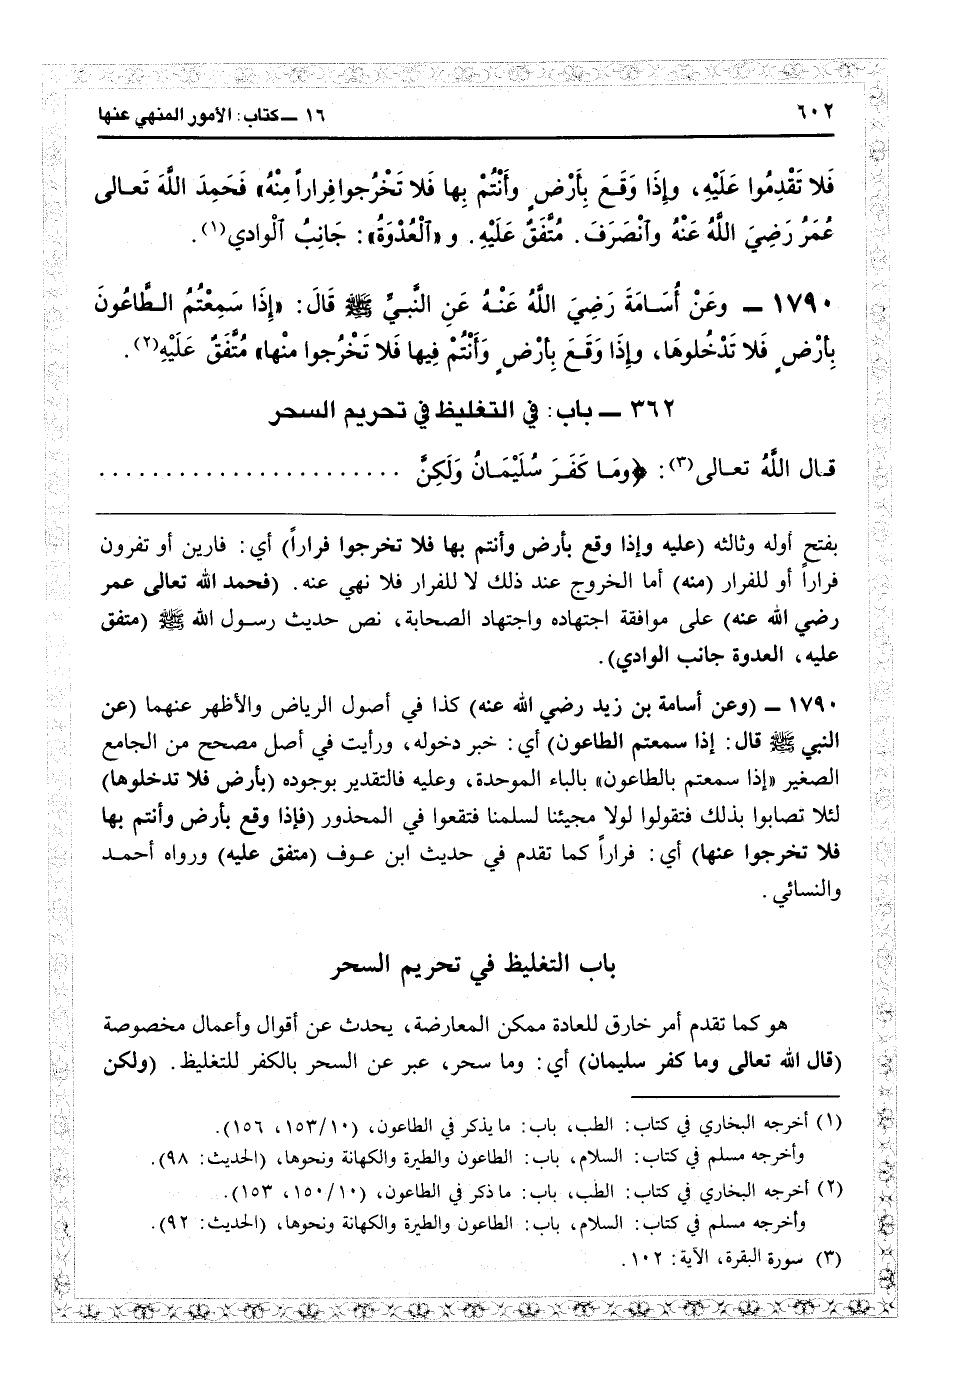 ٦٠٢
١٦ ــ كتاب: الأمور المنهي عنها
فَلا تَقْدِمُوا عَلَيْهِ، وإِذَا وَقَـعَ بِأَرْضٍ وأَنْتُمْ بِها فَلا تَخْرُجوا فِراراً مِنْهُ» فَحَمِدَ اللَّهَ تَعـالى
عُمَرُ رَضِيَ اللَّهُ عَنْهُ وٱنْصَرَفَ. مُتَّفَقٌ عَلَيْهِ. و «ٱلْعُدْوَةُ»: جَانِبُ ٱلْوادي(١).
١٧٩٠ ــ وعَنْ أُسَـامَةَ رَضِيَ اللَّهُ عَنْـهُ عَنِ النَّبـيِّ ﷺ قَالَ: «إِذَا سَمِعْتُمُ الـطَّاعُونَ
بِأَرْضٍ فَلا تَدْخُلوهَا، وإِذَا وَقَعَ بِأَرْضٍ وَأَنْتُمْ فِيها فَلا تَخْرُجوا منْها» مُتَّفَقٌ عَلَيْهِ(٢).
٣٦٢ ــ باب: في التغليظ في تحريم السحر
قـال اللَّهُ تعـالى(٣): ﴿ومَـا كَفَـرَ سُلَيْمَـانُ وَلَكِنَّ . . . . . . . . . . . . . . . . . . . . . . .
بفتح أوله وثالثه (عليه وإذا وقع بأرض وأنتم بها فلا تخرجوا فراراً) أي: فارين أو تفرون
فراراً أو للفرار (منه) أما الخروج عند ذلك لا للفرار فلا نهي عنه. (فحمد الله تعالى عمر
رضي الله عنه) على موافقة اجتهاده واجتهاد الصحابة، نص حديث رسـول الله ﷺ (متفق
عليه، العدوة جانب الوادي).
١٧٩٠ ــ (وعن أسامة بن زيد رضي الله عنه) كذا في أصول الرياض والأظهر عنهما (عن
النبي ﷺ قال: إذا سمعتم الطاعون) أي: خبر دخوله، ورأيت في أصل مصحح من الجامع
الصغير «إذا سمعتم بالطاعون» بالباء الموحدة، وعليه فالتقدير بوجوده (بأرض فلا تدخلوها)
لئلا تصابوا بذلك فتقولوا لولا مجيئنا لسلمنا فتقعوا في المحذور (فإذا وقع بأرض وأنتم بها
فلا تخرجوا عنها) أي: فراراً كما تقدم في حديث ابن عـوف (متفق عليه) ورواه أحمـد
والنسائي.
باب التغليظ في تحريم السحر
هو كما تقدم أمر خارق للعادة ممكن المعارضة، يحدث عن أقوال وأعمال مخصوصة
(قال الله تعالى وما كفر سليمان) أي: وما سحر، عبر عن السحر بالكفر للتغليظ. (ولكن
(١) أخرجه البخاري في كتاب: الطب، باب: ما يذكر في الطاعون، (١٥٣/١٠، ١٥٦).
وأخرجه مسلم في كتاب: السلام، باب: الطاعون والطيرة والكهانة ونحوها، (الحديث: ٩٨).
(٢) أخرجه البخاري في كتاب: الطب، باب: ما ذكر في الطاعون، (١٥٠/١٠، ١٥٣).
وأخرجه مسلم في كتاب: السلام، باب: الطاعون والطيرة والكهانة ونحوها، (الحديث: ٩٢).
(٣) سورة البقرة، الآية: ١٠٢.